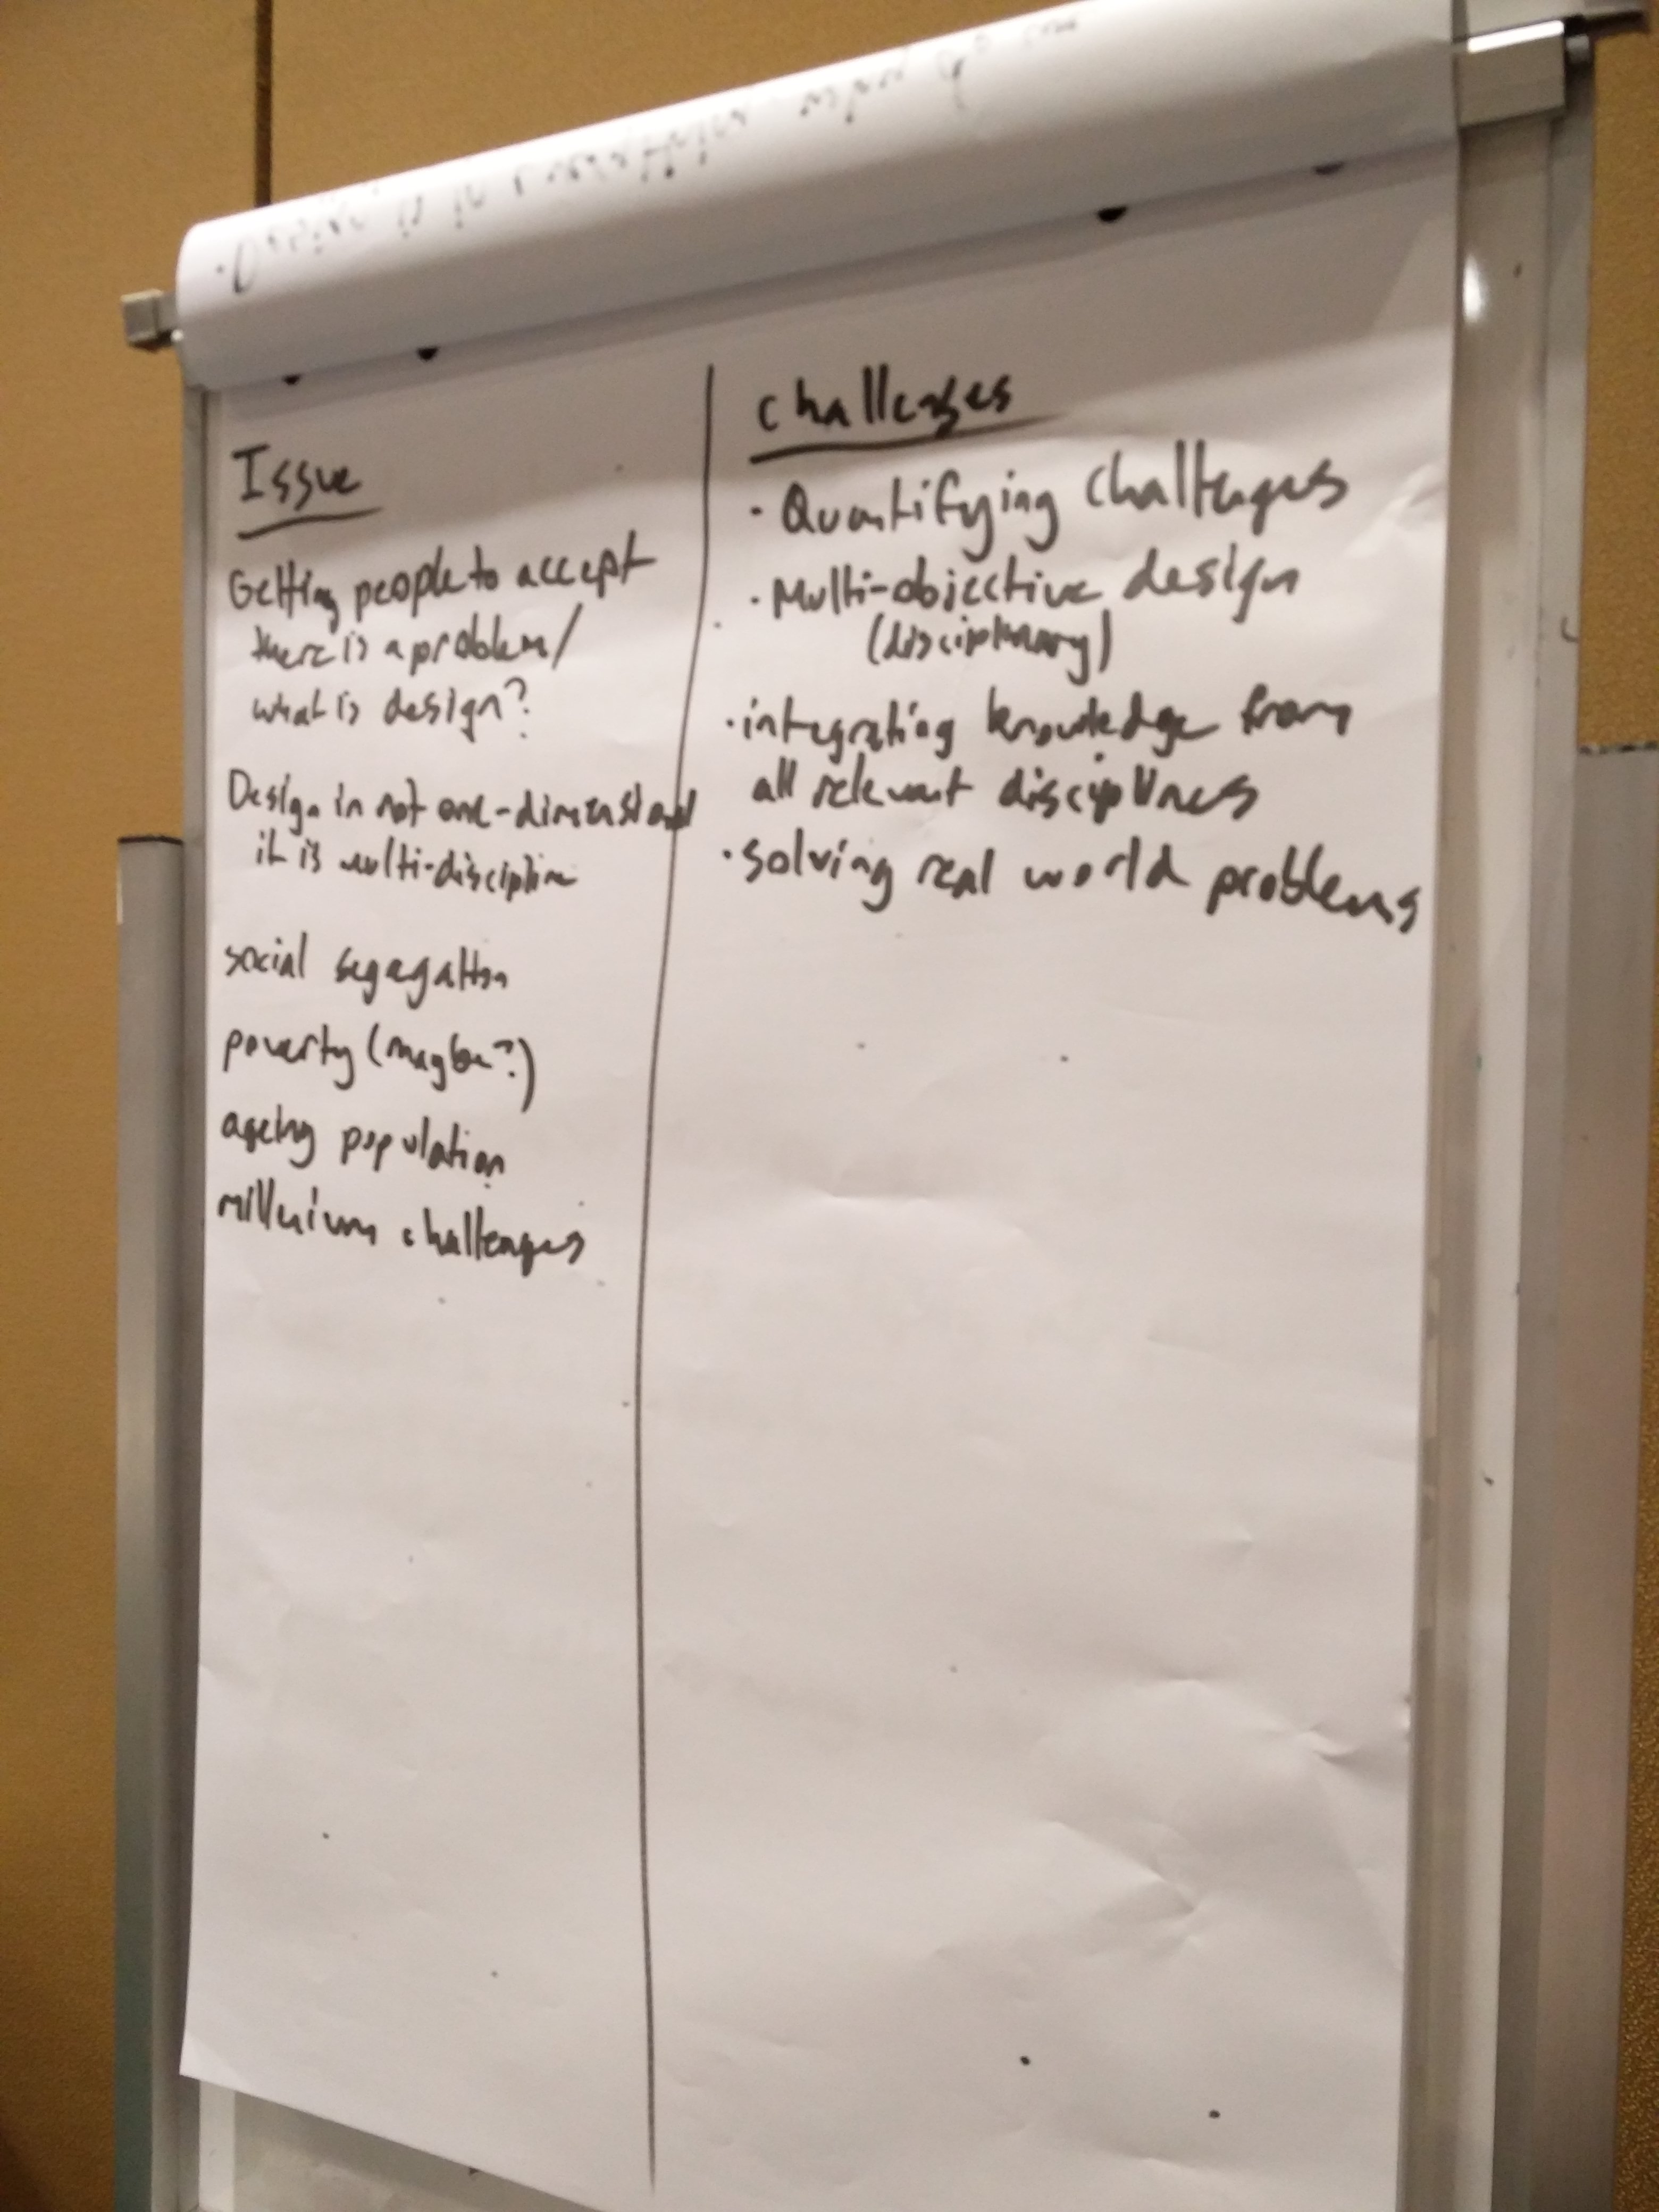 Issue
Getting people to accept
there is a problem/
what is design?
Design in not one-dimensional
it is multi-disciplin
social segegation
poverty (maybe?)
ageing population
millenium challenges
challenges
· Quantifying challenges
· Multi-objective design
(disciplinary)
· integrating knowledge from
all relevant disciplines
· solving real world problems